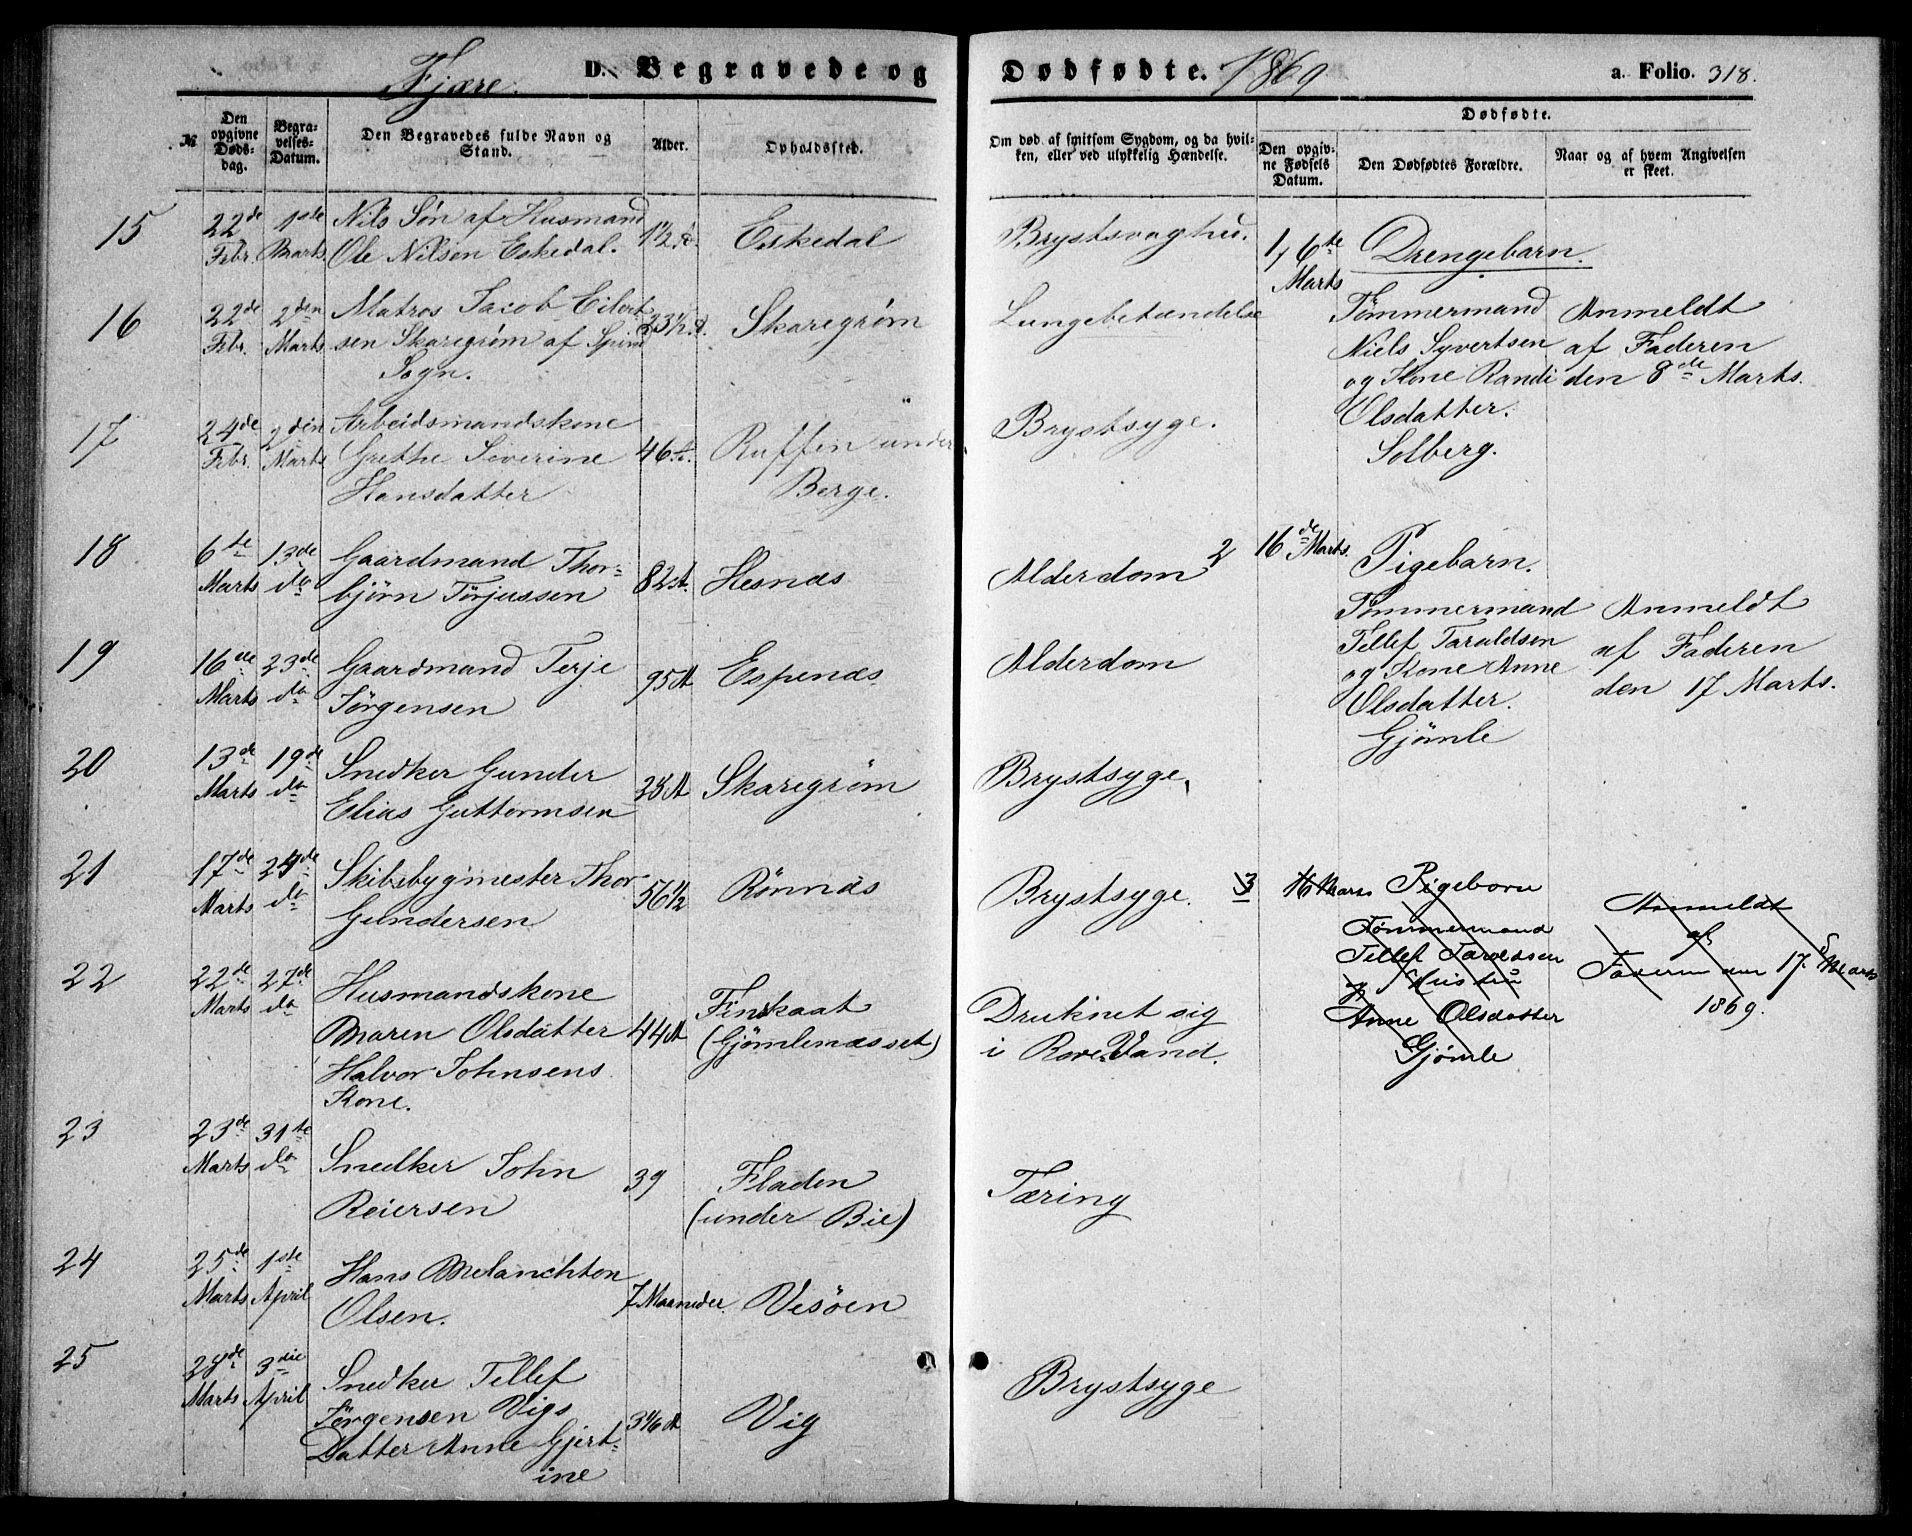 Fjære.
D. Begravede og
Dødfødte. 1869
a. Folio. 318.
№
Den opgivne Døds-dag.
Begra-velses-Datum.
Den Begravedes fulde Navn og Stand.
Alder.
Opholdssted.
Om død af smitsom Sygdom, og da hvil-ken, eller ved ulykkelig Hændelse.
Dødfødte.
Den opgiv-ne Fødsels Datum.
Den Dødfødtes Forældre.
Naar og af hvem Angivelsen er skeet.
15 22de Febr. 1ste Marts
Nils Søn af Husmand
Ole Nilsen Eskedal.
1½ A. Eskedal
Brystsvaghed.
16 22de Febr. 2den Marts
Matros Jacob Eilert
sen Skaregrøm af
Sogn.
23½ A. Skaregrøm
Lungebetændelse
17 24de Febr. 2den Marts
Arbeidsmandskone
Grethe Severine
Hansdatter
46 A. Ruffen under
Berge.
Brystsyge.
18 6te Marts 13de do
Gaardmand Thor-
bjørn Torjussen
82 A. Hesnæs
Alderdom
19 16de Marts 23de do
Gaardmand Terje
Jørgensen
95 A Espenæs
Alderdom
20 13de Marts 19de do
Snedker Gunder
Elias Guttormsen
A Skaregrøm
Brystsyge
21 17de Marts 24de do
Skibsbygmester Thor
Gundersen
56½ Rønnæs
Brystsyge.
22 22de Marts 27de do
Husmandskone
Maren Olsdatter
Halvor Johnsens
Kone.
44 A Finskaat
(Gjømlenæsset)
Druknet sig
i Rore Vand.
23 23de Marts 31te do
Snedker John
Reiersen
39 Fladen
(under Bie)
Tæring
24 25de Marts 1ste April
Hans Melanchton
Olsen.
7 Maaneder. Vesøen
25 28de Marts 3die April
Snedker Tellef
Jørgensen Vigs
Datter Anne Gjert-
ine
3 4/6 A Vig
Brystsyge
1, 6te Marts
Drengebarn.
Tømmermand
Niels Syvertsen
og Kone Randi
Olsdatter.
Solberg.
Anmeldt
af Faderen
den 8de Marts.
2 16de Marts.
Pigebarn.
Tømmermand
Tellef Taraldsen
og Kone Anne
Olsdatter.
Gjømle
Anmeldt
af Faderen
den 17 Marts.
3 16 Marts
Pigebarn
Tømmermand
Tellef Taraldsen
og Hustru
Anne Olsdatter
Gjømle
Anmeldt
af
Faderen den 17. Marts
1869.